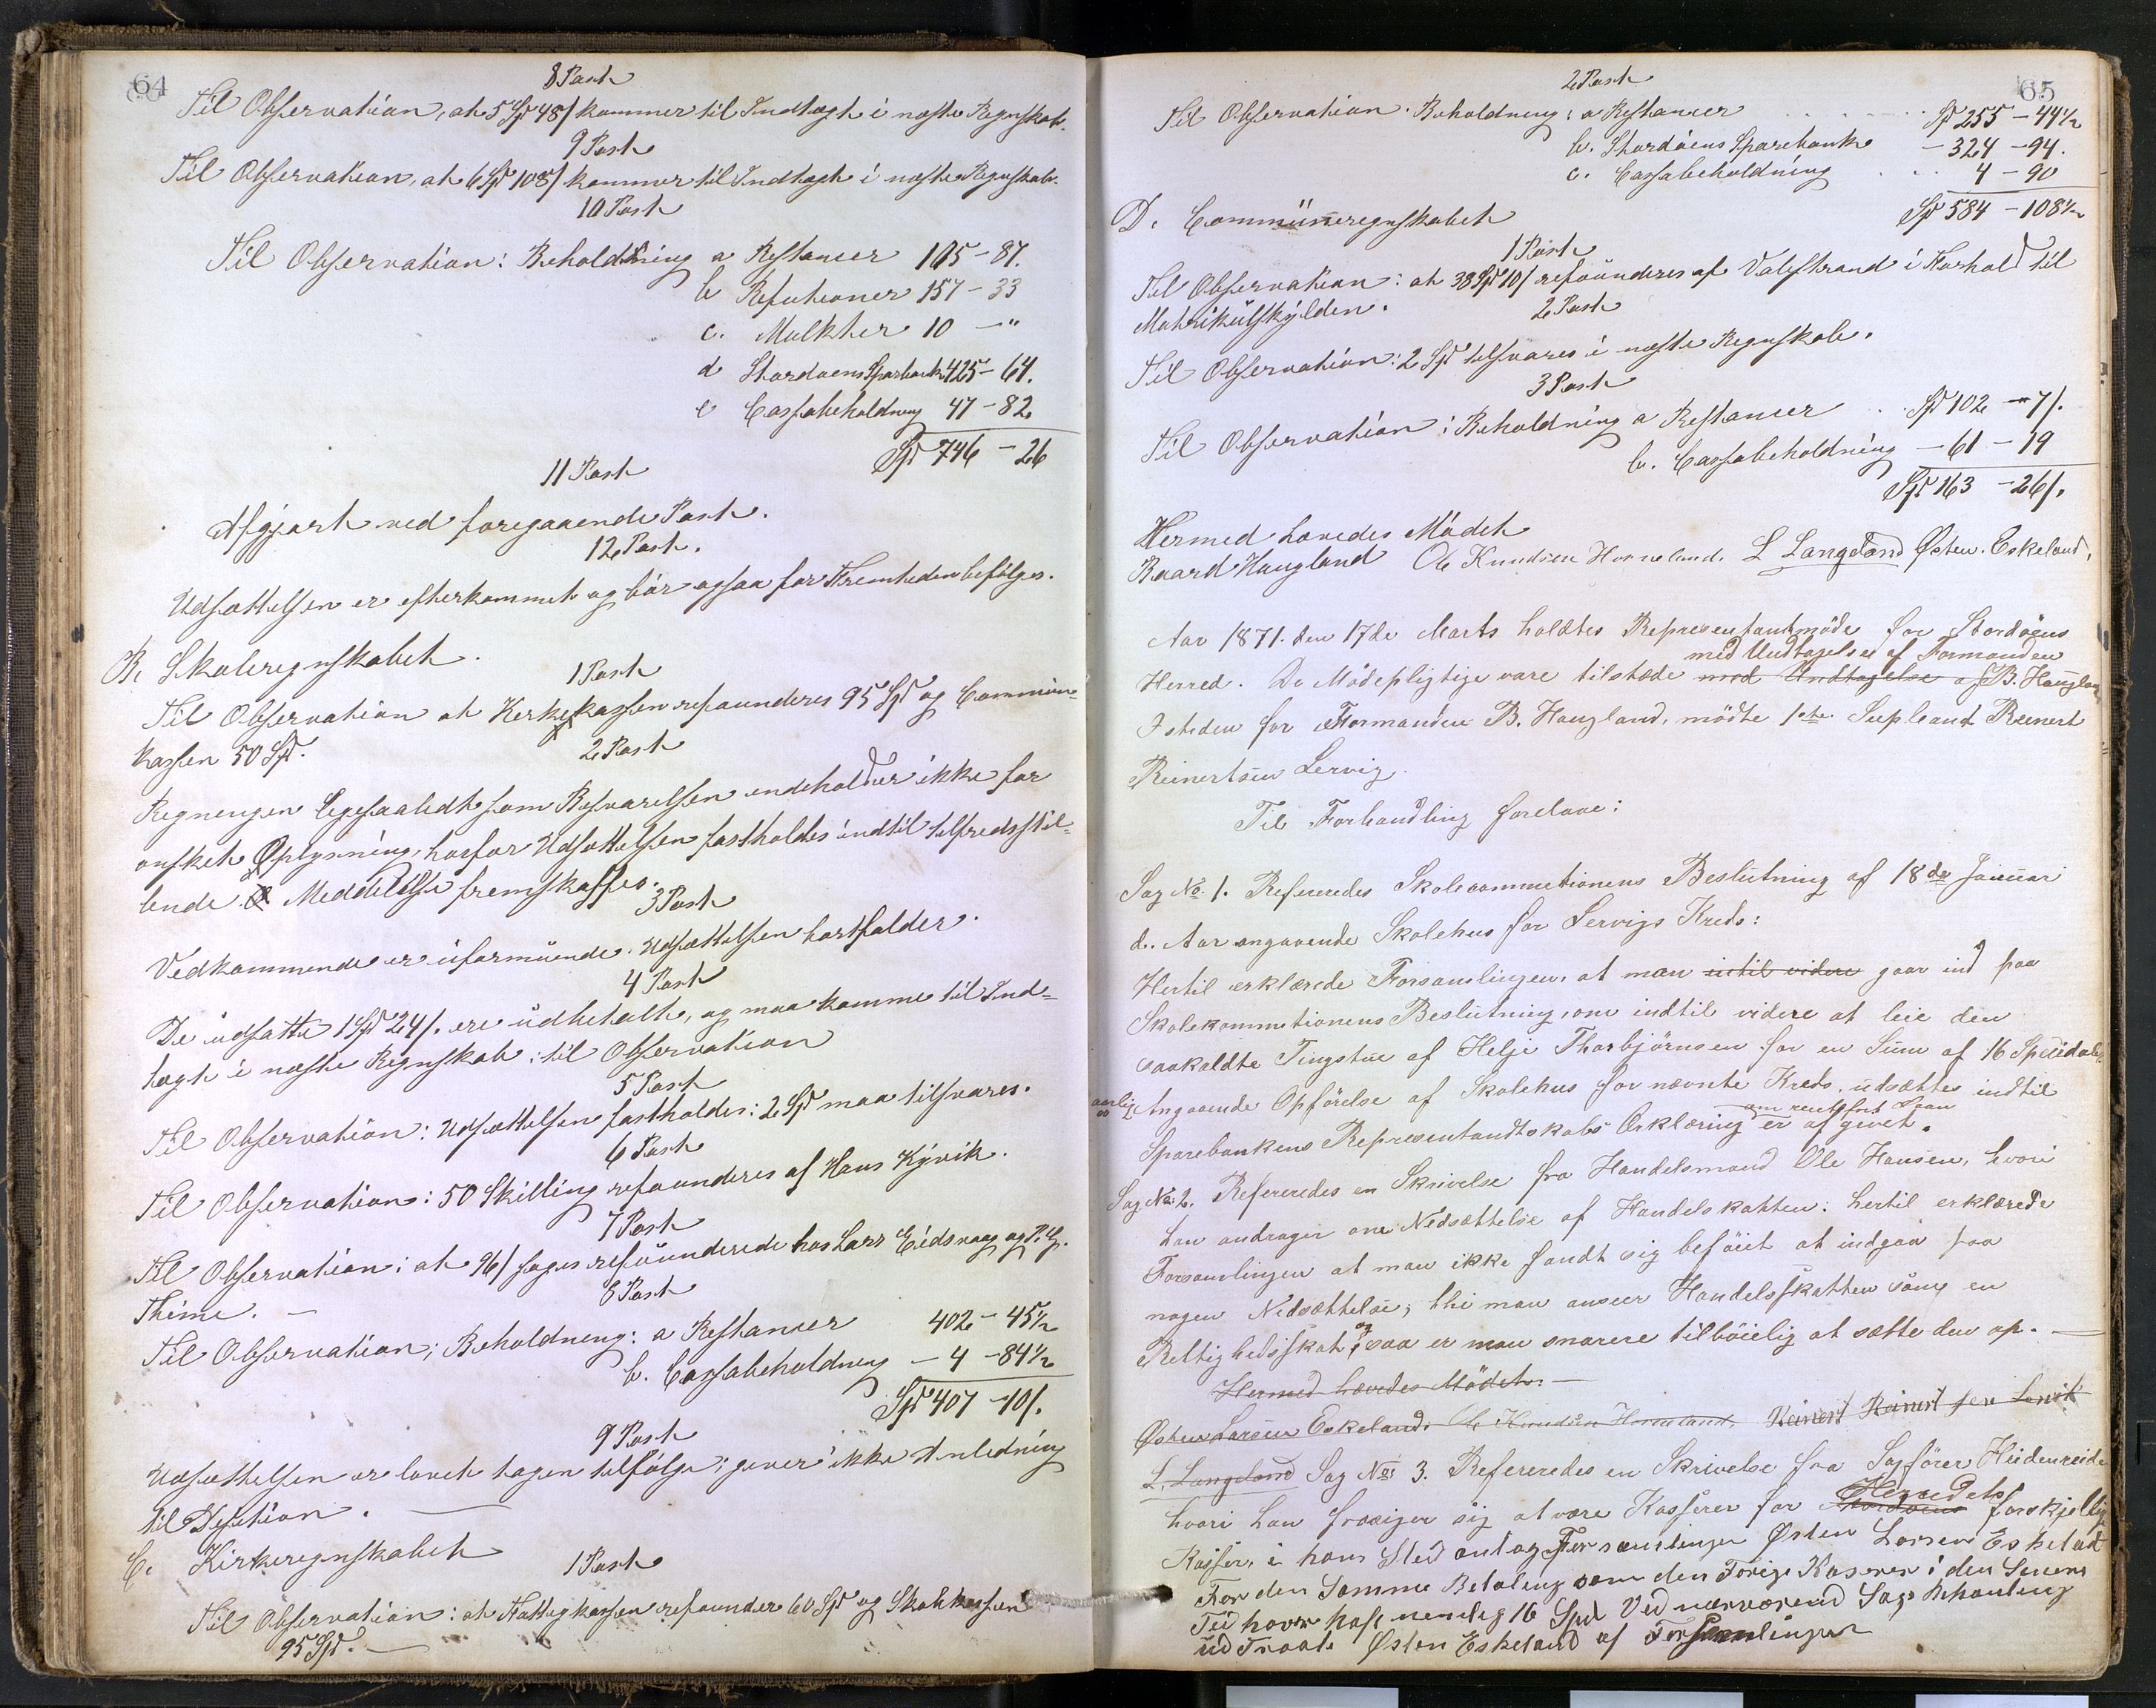 64
8 Post
Til Observation, at 5 Spd 48 ß kommer til Indtægt i næste Regnskab.
9 Post
Til Observation, at 6 Spd 108 ß kommer til Indtægt i næste Regnskab.
10 Post
Til Observation: Beholdning a Restancer 105 - 87.
b Refutioner 157 - 33
c. Mulkter 10 - "
d Stordøens Sparbank 425 - 64.
e Cassabeholdning 47 - 82
Spd 746 - 26
11 Post
Afgjort ved foregaaende Post.
12 Post.
Udsættelsen er efterkommet og bør ogsaa for Fremtiden befølges.
B. Skoleregnskabet.
1 Post
Til Observation at Kirkekassen refounderes 95 Spd og Commune-
kassen 50 Spd.
2 Post
Regningen ligesaalidt som Besvarelsen indeholder ikke for
ønsket Oplysning, hvorfor Udsættelsen fastholdes indtil tilfredsstil-
lende Meddelelse fremskaffes.
3 Post
Vedkommende er uformuende. Udsættelsen bortfalder.
4 Post
De udsatte 1 Spd 24 ß. ere udbetalte, og maa komme til Ind-
tægt i næste Regnskab: til Observation
5 Post
Til Observation: Udsættelsen fastholdes: 2 Spd maa tilsvares.
6 Post
Til Observation: 50 Skilling refounderes af Hans Kyvik.
7 Post
Til Observation: at 96 ß søges refounderede hos Lars Eidsvaag og P. G.
Thime. —
8 Post
Til Observation; Beholdning: a Restancer 402 - 45½
b. Cassabeholdning - 4 - 84½
Spd 407 - 10 ß.
9 Post
Udsættelsen er lovet tagen tilfølge; giver ikke Anledning
til Desition. —
C. Kirkeregnskabet
1 Post
Til Observation: at Fattigkassen refounder 60 Spd og Skolekassen
95 Spd. —
65
2 Post
Til Observation. Beholdning: a Restancer Spd 255 - 44½
b. Stordøens Sparebank - 324 - 94.
c. Cassabeholdning 4 - 90
Spd 584 - 108½
D. Communeregnskabet
1 Post
Til Observation: at 38 Spd 10 ß refounderes af Valestrand i Forhold til
Matrikulskylden.
2 Post
Til Observation: 2 Spd tilsvares i næste Regnskab.
3 Post
Til Observation: Beholdning a Restancer Spd 102 - 7 ß.
b. Cassabeholdning - 61 - 19
Spd 163 - 26 ß.
Hermed hævedes Mødet
Baard Haugland Ole Knudsen Horneland. L Langeland Østen Eskeland.
Aar 1871. den 17de Marts holdtes Representantmøde for Stordøens
med Undtagelse af Formanden
Herred. De Mødepligtige vare tilstæde med Undtagelse af B. Haugland
Isteden for Formanden B. Haugland, mødte 1ste Supleant Reinert
Reinertsen Lervig.
Til Forhandling forelaae:
Sag No 1. Refereredes Skolecommetionens Beslutning af 18de Januar
d. Aar angaaende Skolehus for Lervigs Kreds:
Hertil erklærede Forsamlingen, at man intil videre gaar ind paa
Skolekommetionens Beslutning, om indtil videre at leie den
saakaldte Tingstue af Helje Thorbjørnsen for en Sum af 16 Speciedaler
aarlig Angaaende Opførelse af Skolehus for nævnte Kreds. udsættes indtil
om rentefrit Laan
Sparebankens Representandtskabs Erklæring er afgivet.
Sag No. 2. Refereredes en Skrivelse fra Handelsmand Ole Hansen, hvori
han andrager om Nedsættelse af Handelskatten: hertil erklærede
Forsamlingen at man ikke fandt sig beføiet at indgaa paa
nogen Nedsættelse; thi man anseer Handelsskatten som en
Rettighedsskat, og saa er man snarere tilbøielig at sætte den op. —
Hermed hævedes Mødet. —
Østen Larsen Eskeland. Ole Knudsen Horneland. Reinert Reinertsen Lervik
L. Langeland Sag No: 3. Refereredes en Skrivelse fra Sagfører Heidenreich
hvori han frasiger sig at være Kasserer for Stordøens Herredets forskjellige
Kasser, i hans Sted antog Forsamlingen Østen Larsen Eskeland
For den Samme Betaling som den Forige Kaserer i den Senere
Tid haver haft nemlig 16 Spd. Ved nærværend Sags Behanling
udtraadte Østen Eskeland af Forsamlingen